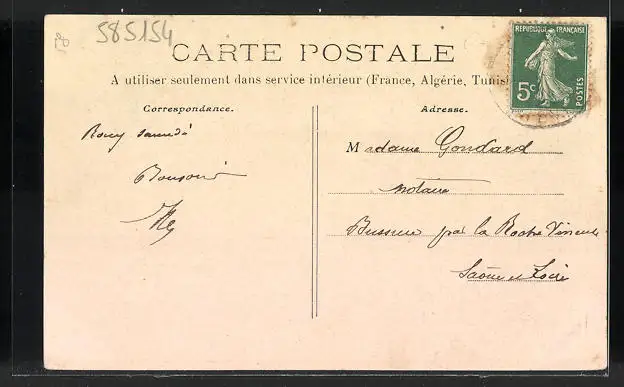 585154
CARTE POSTALE
A utiliser seulement dans service intérieur (France, Algérie, Tunis
REPUBLIQUE FRANÇAISE
5c
POSTES
Correspondance.
samedi
Bonsoir
Adresse.
Madame Gondard
notaire
par la Roche Vineuse
Saône et Loire